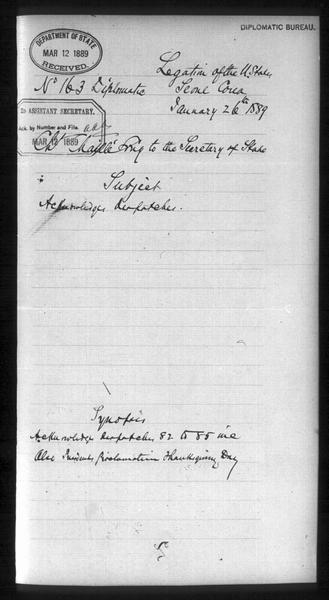 DIPLOMATIC BUREAU.
DEPARTMENT OF STATE
MAR 12 1889
RECEIVED.
Legation of the U. States
Seoul Corea
January 26th 1889
No 163 Diplomatic
2D ASSISTANT SECRETARY.
Ack. by Number and File.
MAR 12 1889
to the Secretary of State
Subject
Acknowledges Despatches.
Synopsis
Acknowledges despatches 82 to 85 inc
Also Proclamation Thanksgiving Day